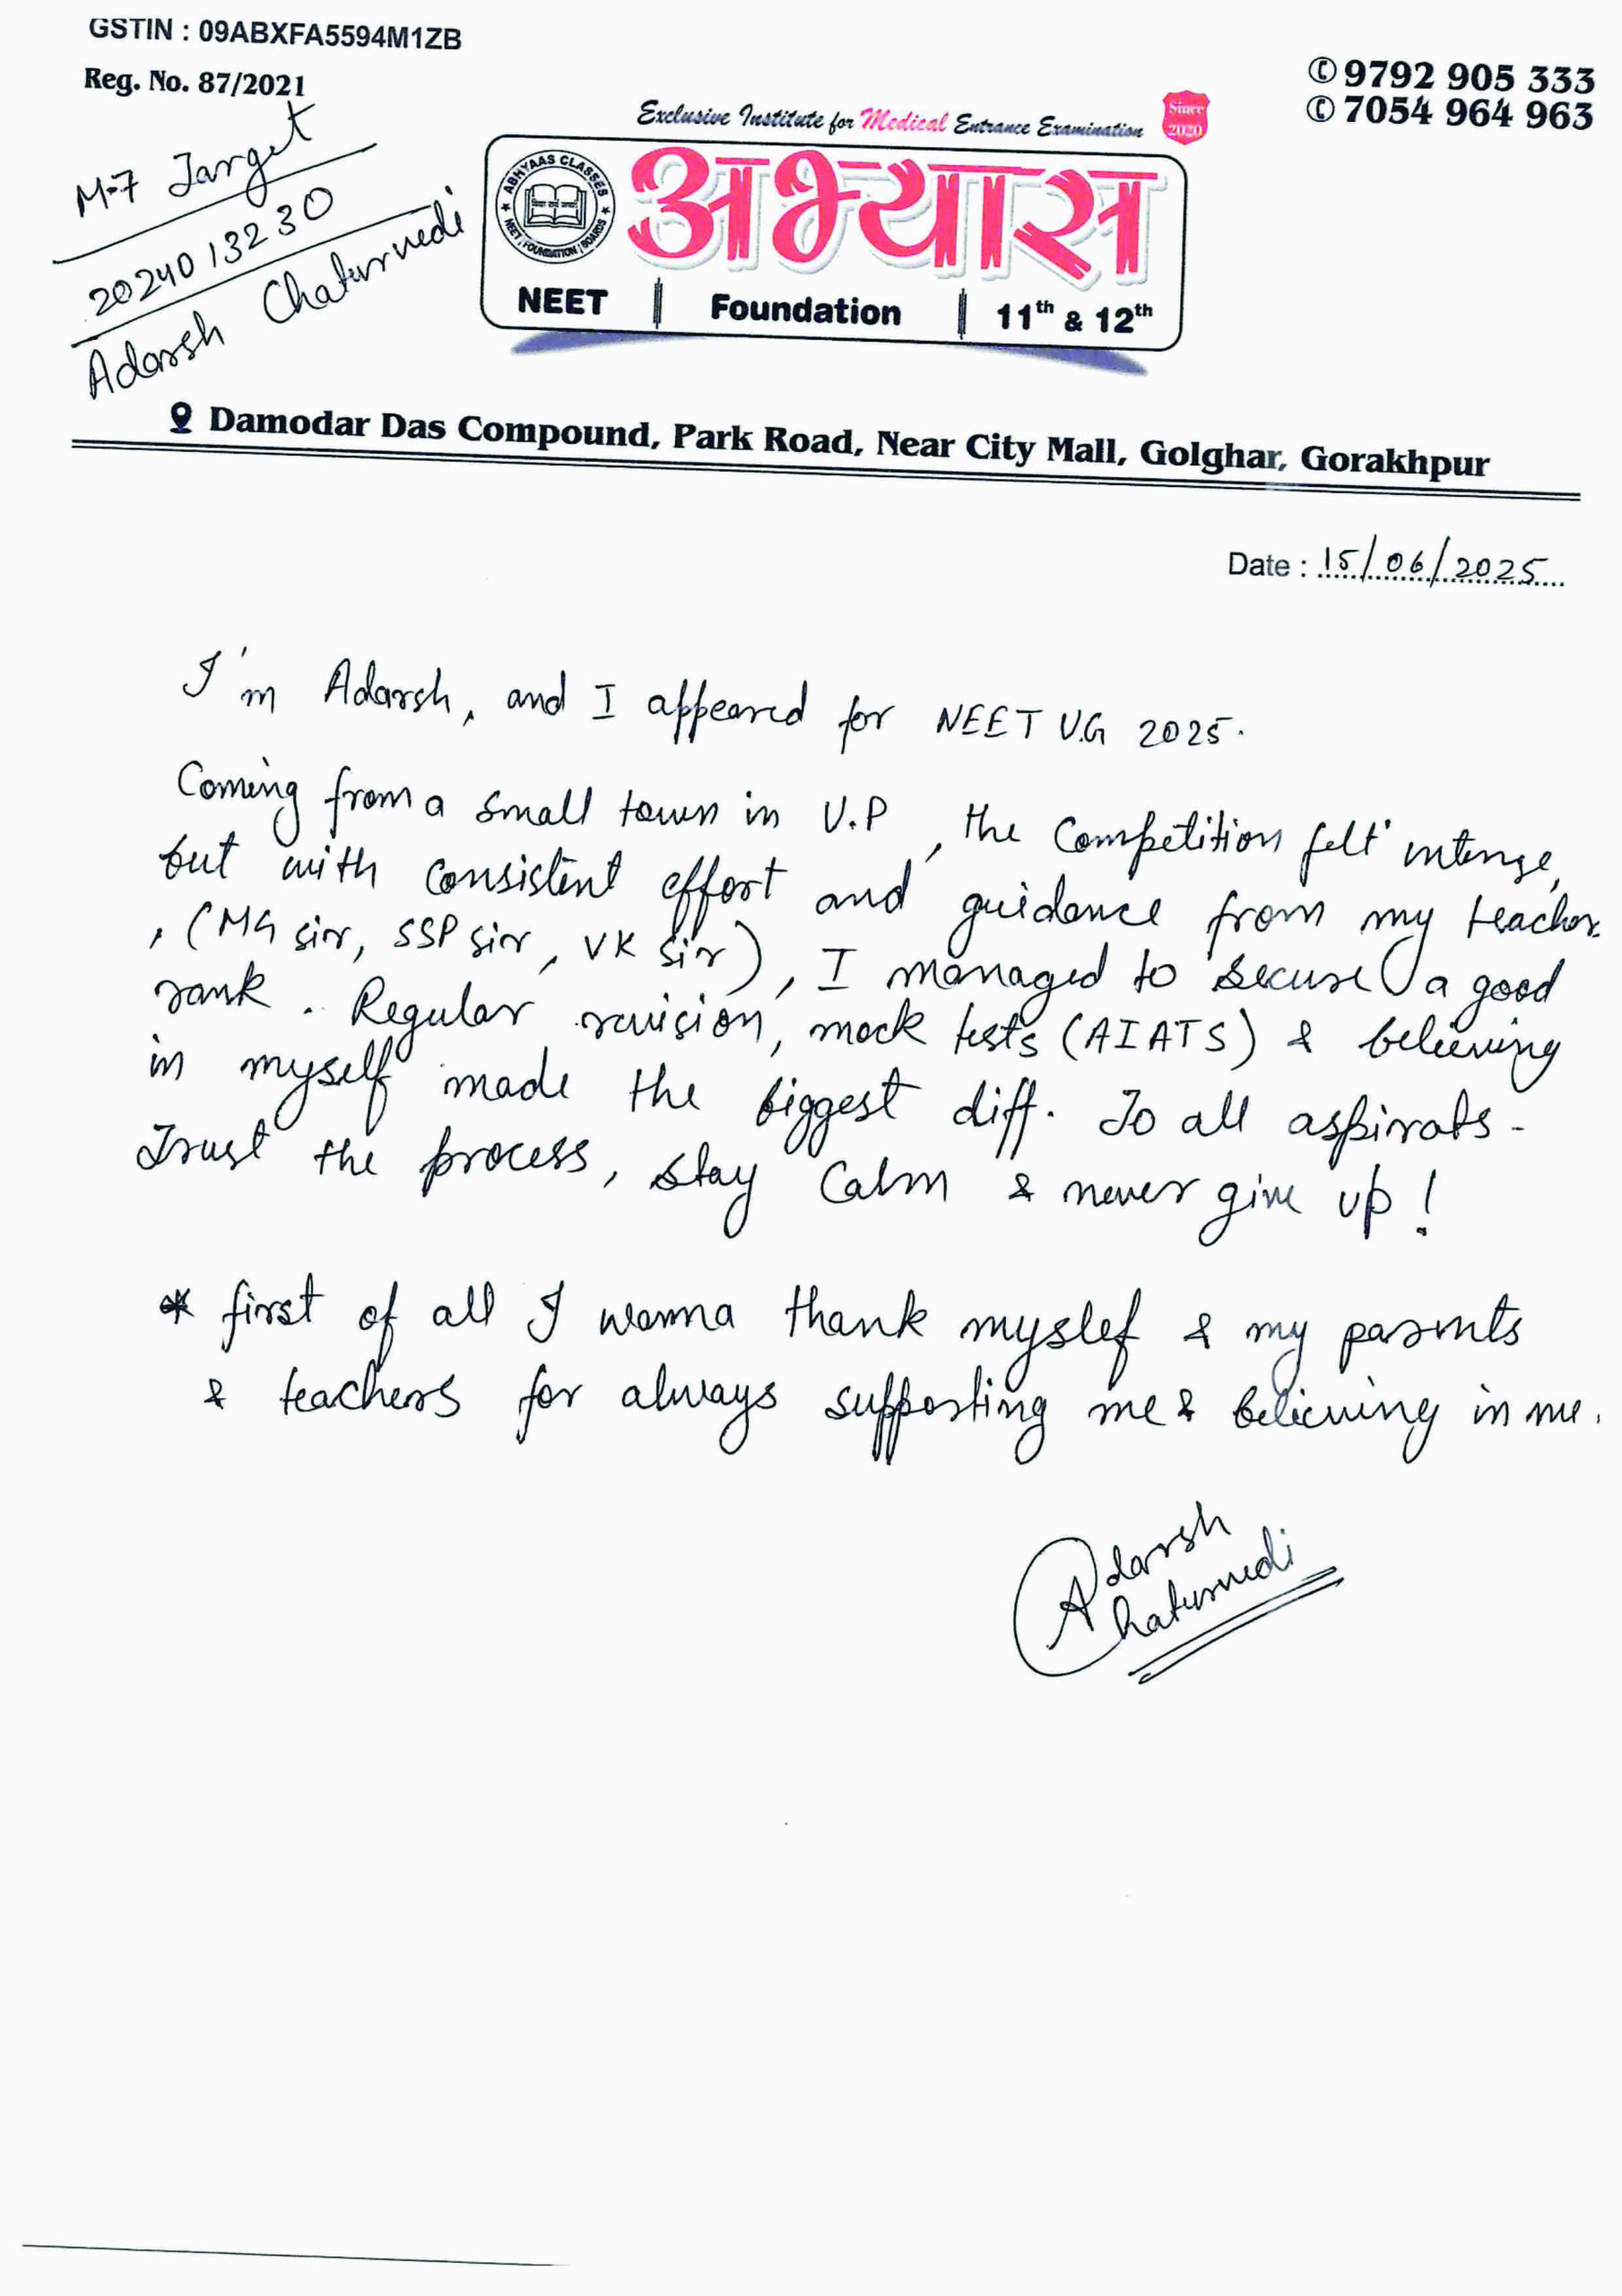 GSTIN : 09ABXFA5594M1ZB
Reg. No. 87/2021
✆ 9792 905 333
✆ 7054 964 963
M-7 Target
2024013230
Adarsh Chaturvedi
Exclusive Institute for Medical Entrance Examination
Since 2020
ABHYAAS CLASSES
NEET | FOUNDATION | BOARDS
अभ्यास
NEET | Foundation | 11th & 12th
Damodar Das Compound, Park Road, Near City Mall, Golghar, Gorakhpur
Date : 15/06/2025
I'm Adarsh, and I appeared for NEET U.G 2025.
Coming from a small town in U.P, the Competition felt intense,
but with consistent effort and guidance from my teacher
, (MG sir, SSP sir, VK sir), I managed to secure a good
rank. Regular revision, mock tests (AIATS) & believing
in myself made the biggest diff. To all aspirats -
Trust the process, stay Calm & never give up!
* first of all I wanna thank myslef & my parents
& teachers for always supporting me & believing in me.
Adarsh
Chaturvedi